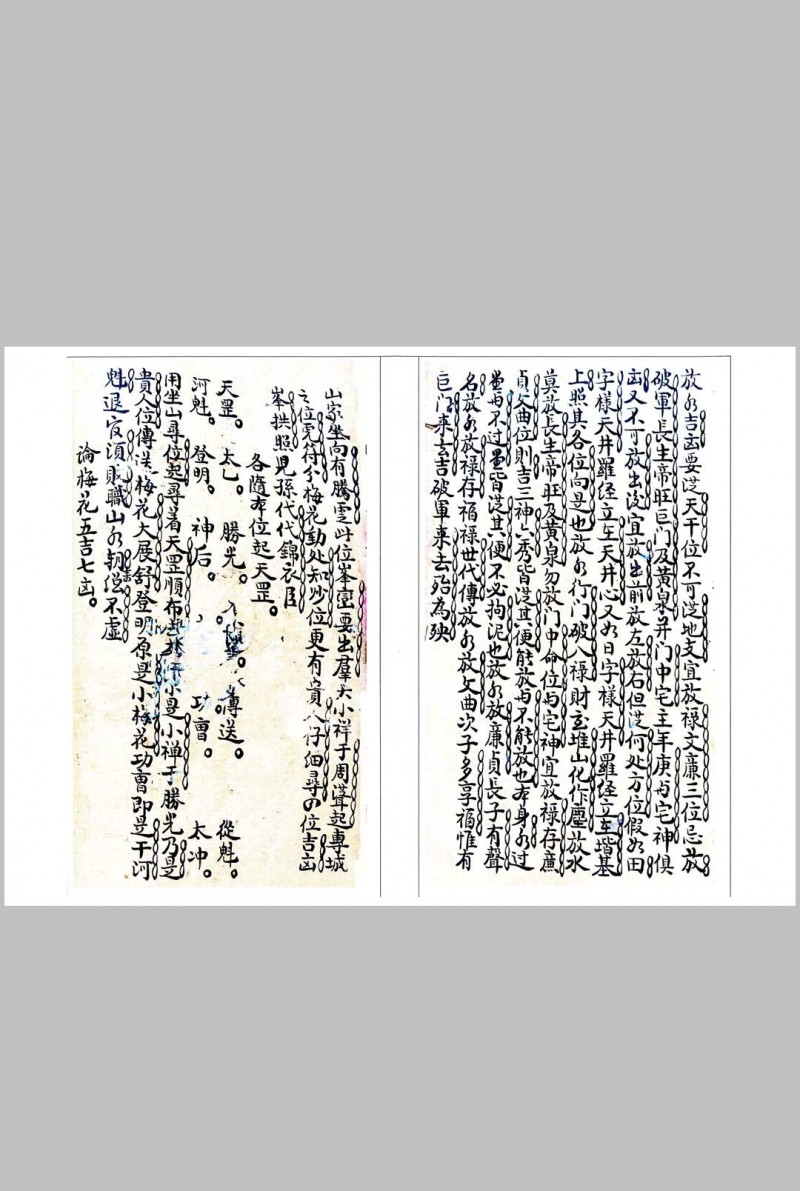 放水吉凶要從天干位不可從地支宜放祿文廉三位忌放
破軍長生帝旺巨門及黃泉并门中宅主年庚与宅神俱
凶又不可放出後宜放出前放左放右但從何处方位假如田
字樣天井羅经立在天井心又如日字樣天井羅径立在堦基
上照其各位向是也放水行门破入祿財玄堆山化作塵放水
莫放長生帝旺及黄泉勿放门中命位与宅神宜放禄存廉
貞文曲位則吉三神六秀皆從其便能放与不能放也本身水过
堂与不过堂皆從其便不必拘泥也放水放廉貞長子有聲
名放水放禄存福禄世代傳放水放文曲次子多享福惟有
巨门来去吉破軍来去殆為殃
山家坐向有騰雲此位峯巒要出羣大小祥于周從起專城
之位完符分梅花動处知妙位更有貴人仔细尋四位吉凶
峯拱照児孫代代錦衣臣
各隨本位起天罡
天罡。太乙。勝光。傳送。從魁。
河魁。登明。神后。功曹。太冲。
用坐山尋位起尋着天罡順布小是小禅于勝光乃是
貴人位傳送梅花大展舒登明原是小梅花功曹即是干河
魁退官須貶職山水朝從不虚
論梅花五吉七凶。